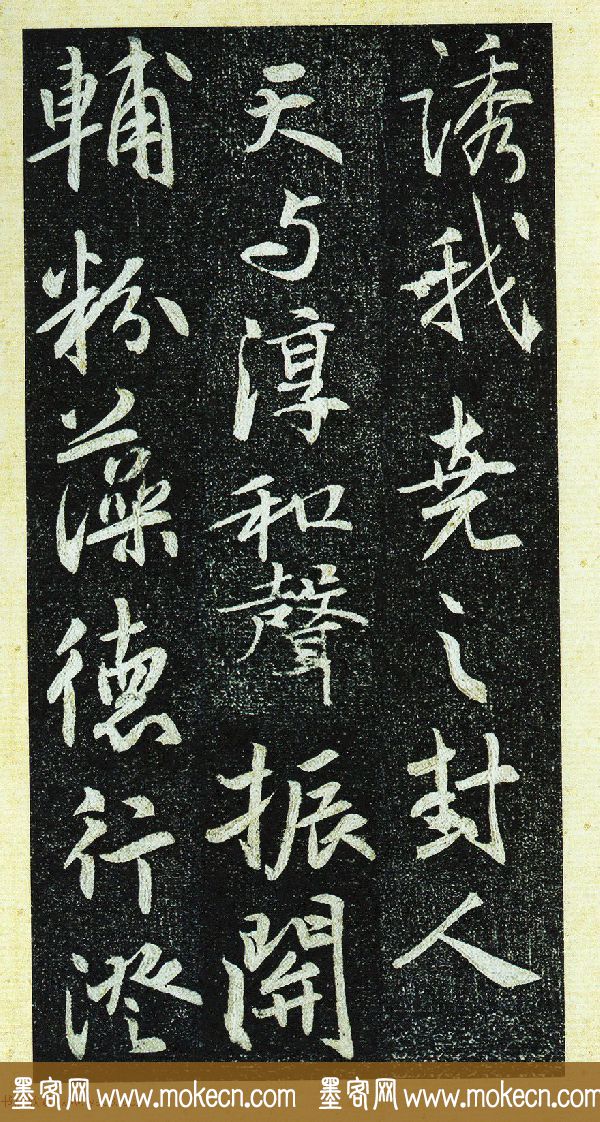 誘我堯之封人
天与淳和聲振關
輔粉藻德行澄
墨客网 www.mokecn.com 墨客网 www.mokecn.com